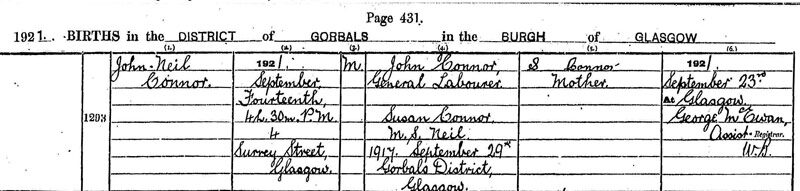 Page 431.
1921. BIRTHS in the DISTRICT of GORBALS in the BURGH of GLASGOW
(1.) (2.) (3.) (4.) (5.) (6.)
John Neil 1921. M. John Connor, S Connor 1921.
Connor. September General Labourer. Mother. September 23rd
Fourteenth, at Glasgow.
1293 4h. 30m. P.M. Susan Connor George McEwan,
4 M. S. Neil Assist. Registrar.
Surrey Street, 1917. September 29th W.B.
Glasgow. Gorbals District,
Glasgow.